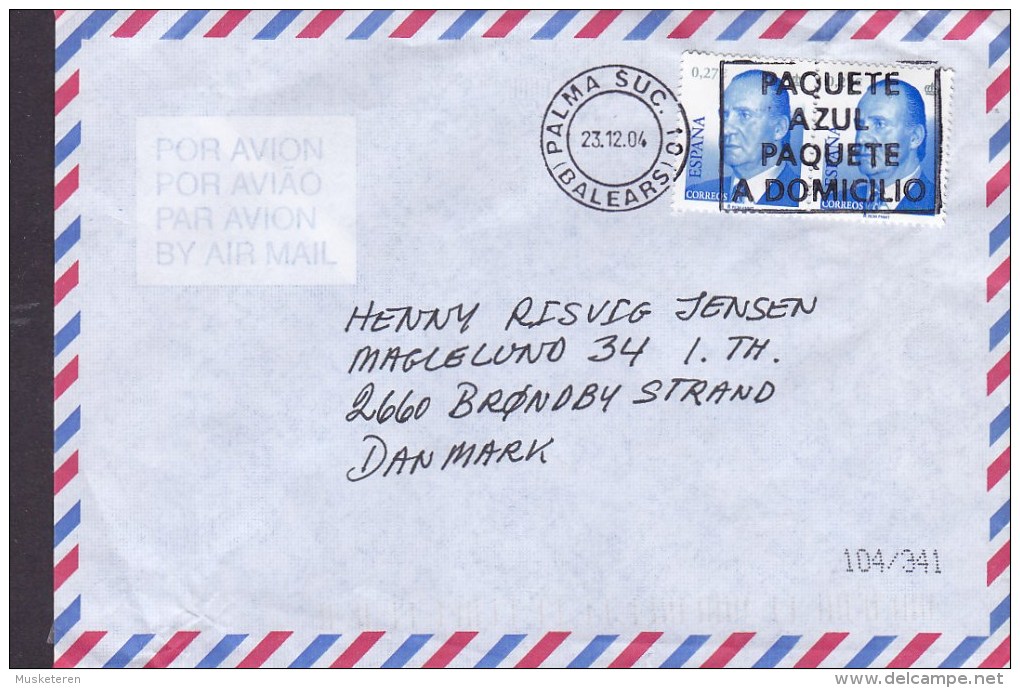 POR AVION
POR AVIÃO
PAR AVION
BY AIR MAIL
PALMA SUC. 10
(BALEARS)
23.12.04
0,27€
ESPAÑA
CORREOS
ESPAÑA
CORREOS
PAQUETE
AZUL
PAQUETE
A DOMICILIO
HENNY RISVIG JENSEN
MAGLELUND 34 1. TH.
2660 BRØNDBY STRAND
DANMARK
104/341
Musketeren
delcampe.net